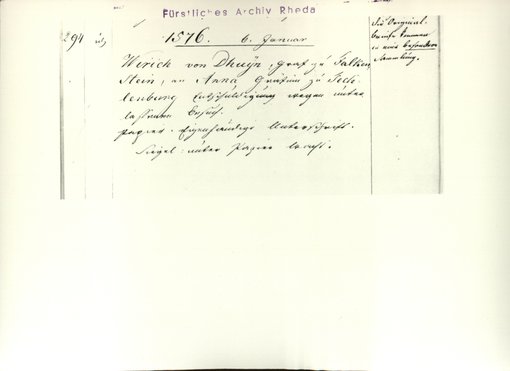 Fürstliches Archiv Rheda
294
1576. 6. Januar
Wirich von Dhuÿn, Graf zu Falken
stein, an Anna Gräfinn zu Teck
lenburg Entschuldigung wegen unter
lassenen Besuch.
Papier. Eigenhändige Unterschrift.
Siegel unter Papier
Die Original
briefe kommen
in eine besondere
Sammlung.